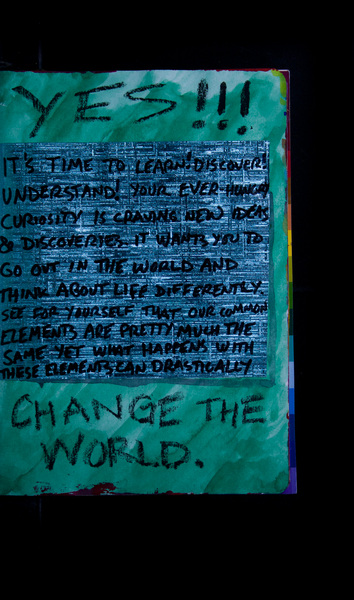 YES!!!
IT'S TIME TO LEARN! DISCOVER!
UNDERSTAND! YOUR EVER-HUNGRY
CURIOSITY IS CRAVING NEW IDEAS
& DISCOVERIES. IT WANTS YOU TO
GO OUT IN THE WORLD AND
THINK ABOUT LIFE DIFFERENTLY.
SEE FOR YOURSELF THAT OUR COMMON
ELEMENTS ARE PRETTY MUCH THE
SAME YET WHAT HAPPENS WITH
THESE ELEMENTS CAN DRASTICALLY
CHANGE THE
WORLD.